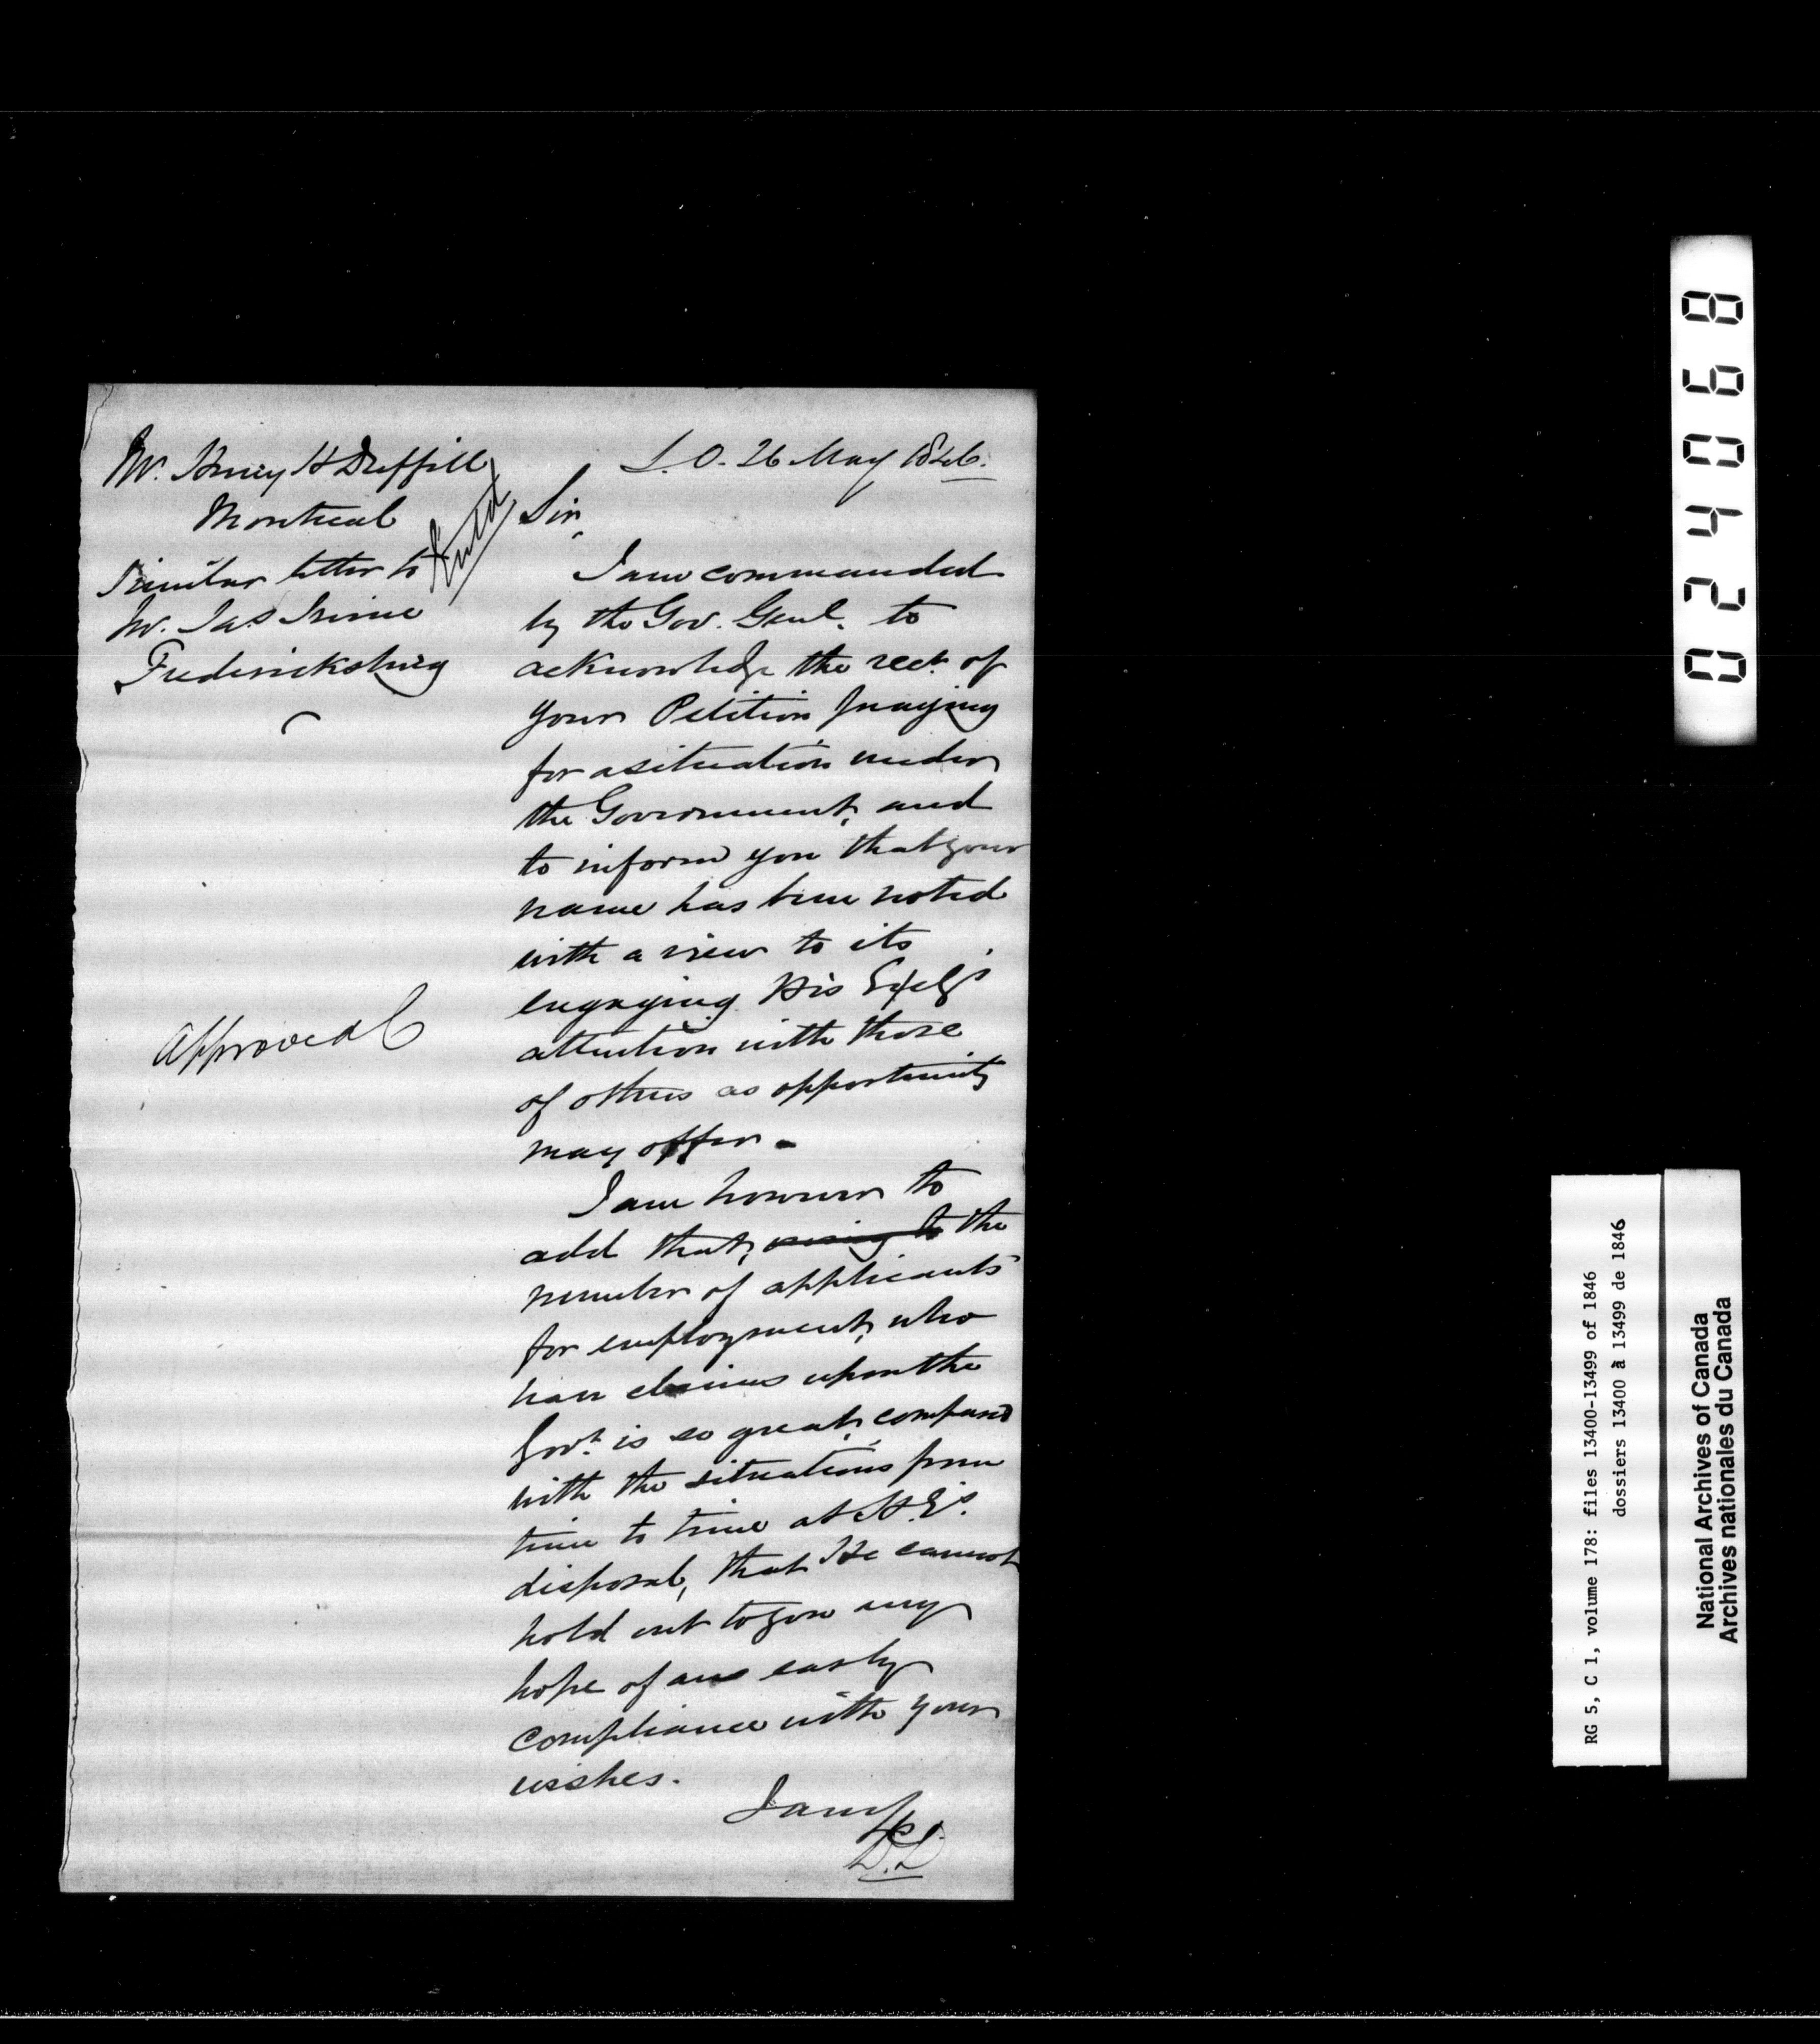 Mr. Henry H Duffill
Montreal
Similar letter to
Mr. Jas Irvine
Fredericksburg
Entd
Approved C
S. O. 26 May 1846.
Sir,
I am commanded
by the Gov. Genl. to
acknowledge the rect. of
your Petition praying
for a situation under
the Government, and
to inform you that your
name has been noted
with a view to its
engaging His Excly's
attention with those
of others as opportunity
may offer -
I am however to
add that, owing to the
number of applicants
for employment, who
have claims upon the
Govt. is so great, compared
with the situations from
time to time at H. E's.
disposal, that He cannot
hold out to you any
hope of an early
compliance with your
wishes.
I am
D.D
024068
RG 5, C 1, volume 178: files 13400-13499 of 1846
dossiers 13400 à 13499 de 1846
National Archives of Canada
Archives nationales du Canada